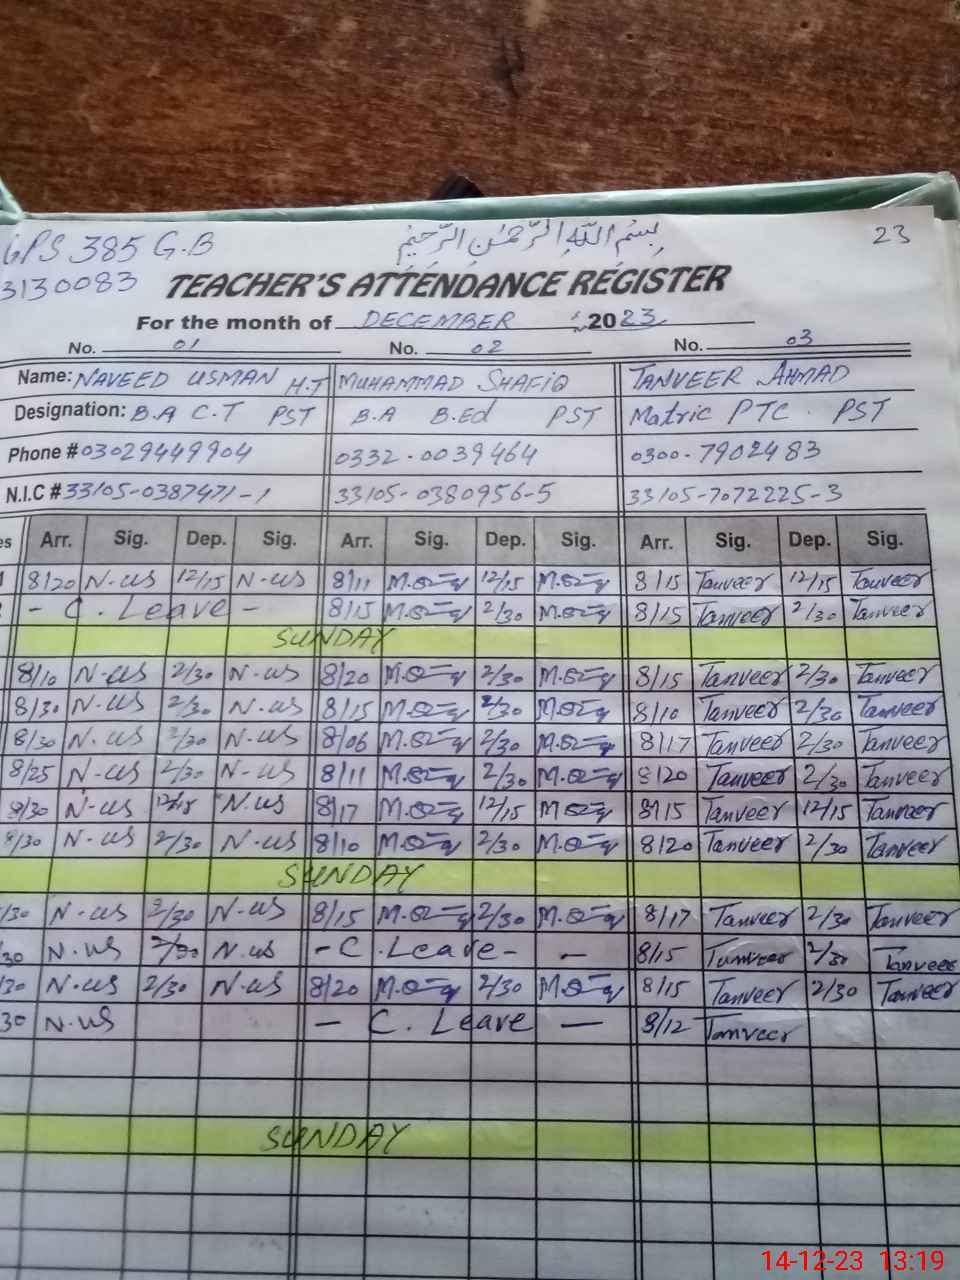 GPS 385 G.B
بِسْمِ اللهِ الرَّحْمٰنِ الرَّحِيْمِ
23
3130083
TEACHER'S ATTENDANCE REGISTER
For the month of DECEMBER 2023
No. 01 No. 02 No. 03
Name: NAVEED USMAN H.T MUHAMMAD SHAFIQ TANVEER AHMAD
Designation: B.A C.T PST B.A B.Ed PST Matric PTC. PST
Phone # 03029449904 0332-0039464 0300-7902483
N.I.C # 33105-0387471-1 33105-0380956-5 33105-7072225-3
es Arr. Sig. Dep. Sig. Arr. Sig. Dep. Sig. Arr. Sig. Dep. Sig.
8/20 N-us 12/15 N-us 8/11 12/15 8/15 Tanveer 12/15 Tanveer
- C. Leave - 8/15 2/30 8/15 Tanveer 2/30 Tanveer
SUNDAY
8/10 N-us 2/30 N-us 8/20 2/30 8/15 Tanveer 2/30 Tanveer
8/30 N-us 2/30 N-us 8/15 2/30 8/10 Tanveer 2/30 Tanveer
8/30 N-us 2/30 N-us 8/06 2/30 8/17 Tanveer 2/30 Tanveer
8/25 N-us 2/30 N-us 8/11 2/30 8/20 Tanveer 2/30 Tanveer
8/30 N-us 12/15 N.us 8/17 12/15 8/15 Tanveer 12/15 Tanveer
8/30 N-us 2/30 N-us 8/10 2/30 8/20 Tanveer 2/30 Tanveer
SUNDAY
/30 N-us 2/30 N-us 8/15 2/30 8/17 Tanveer 2/30 Tanveer
30 N.us 2/30 N.us - C. Leave - - 8/15 Tanveer 2/30 Tanveer
/30 N.us 2/30 N-us 8/20 2/30 8/15 Tanveer 2/30 Tanveer
30 N.us - C. Leave - 8/12 Tanveer
SUNDAY
14-12-23 13:19